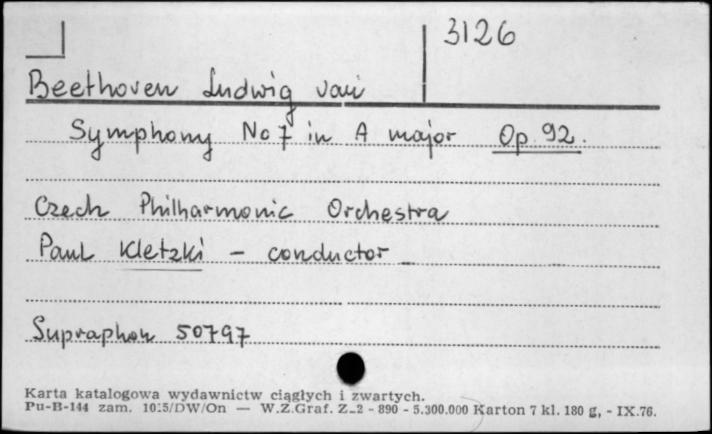 3126
Beethoven Ludwig van
Symphony No 7 in A major Op. 92.
Czech Philharmonic Orchestra
Paul Kletzki - conductor
Supraphon 50797
Karta katalogowa wydawnictw ciągłych i zwartych.
Pu-B-144 zam. 1015/DW/On — W.Z.Graf. Z-2 - 890 - 5.300.000 Karton 7 kl. 180 g, - IX.76.